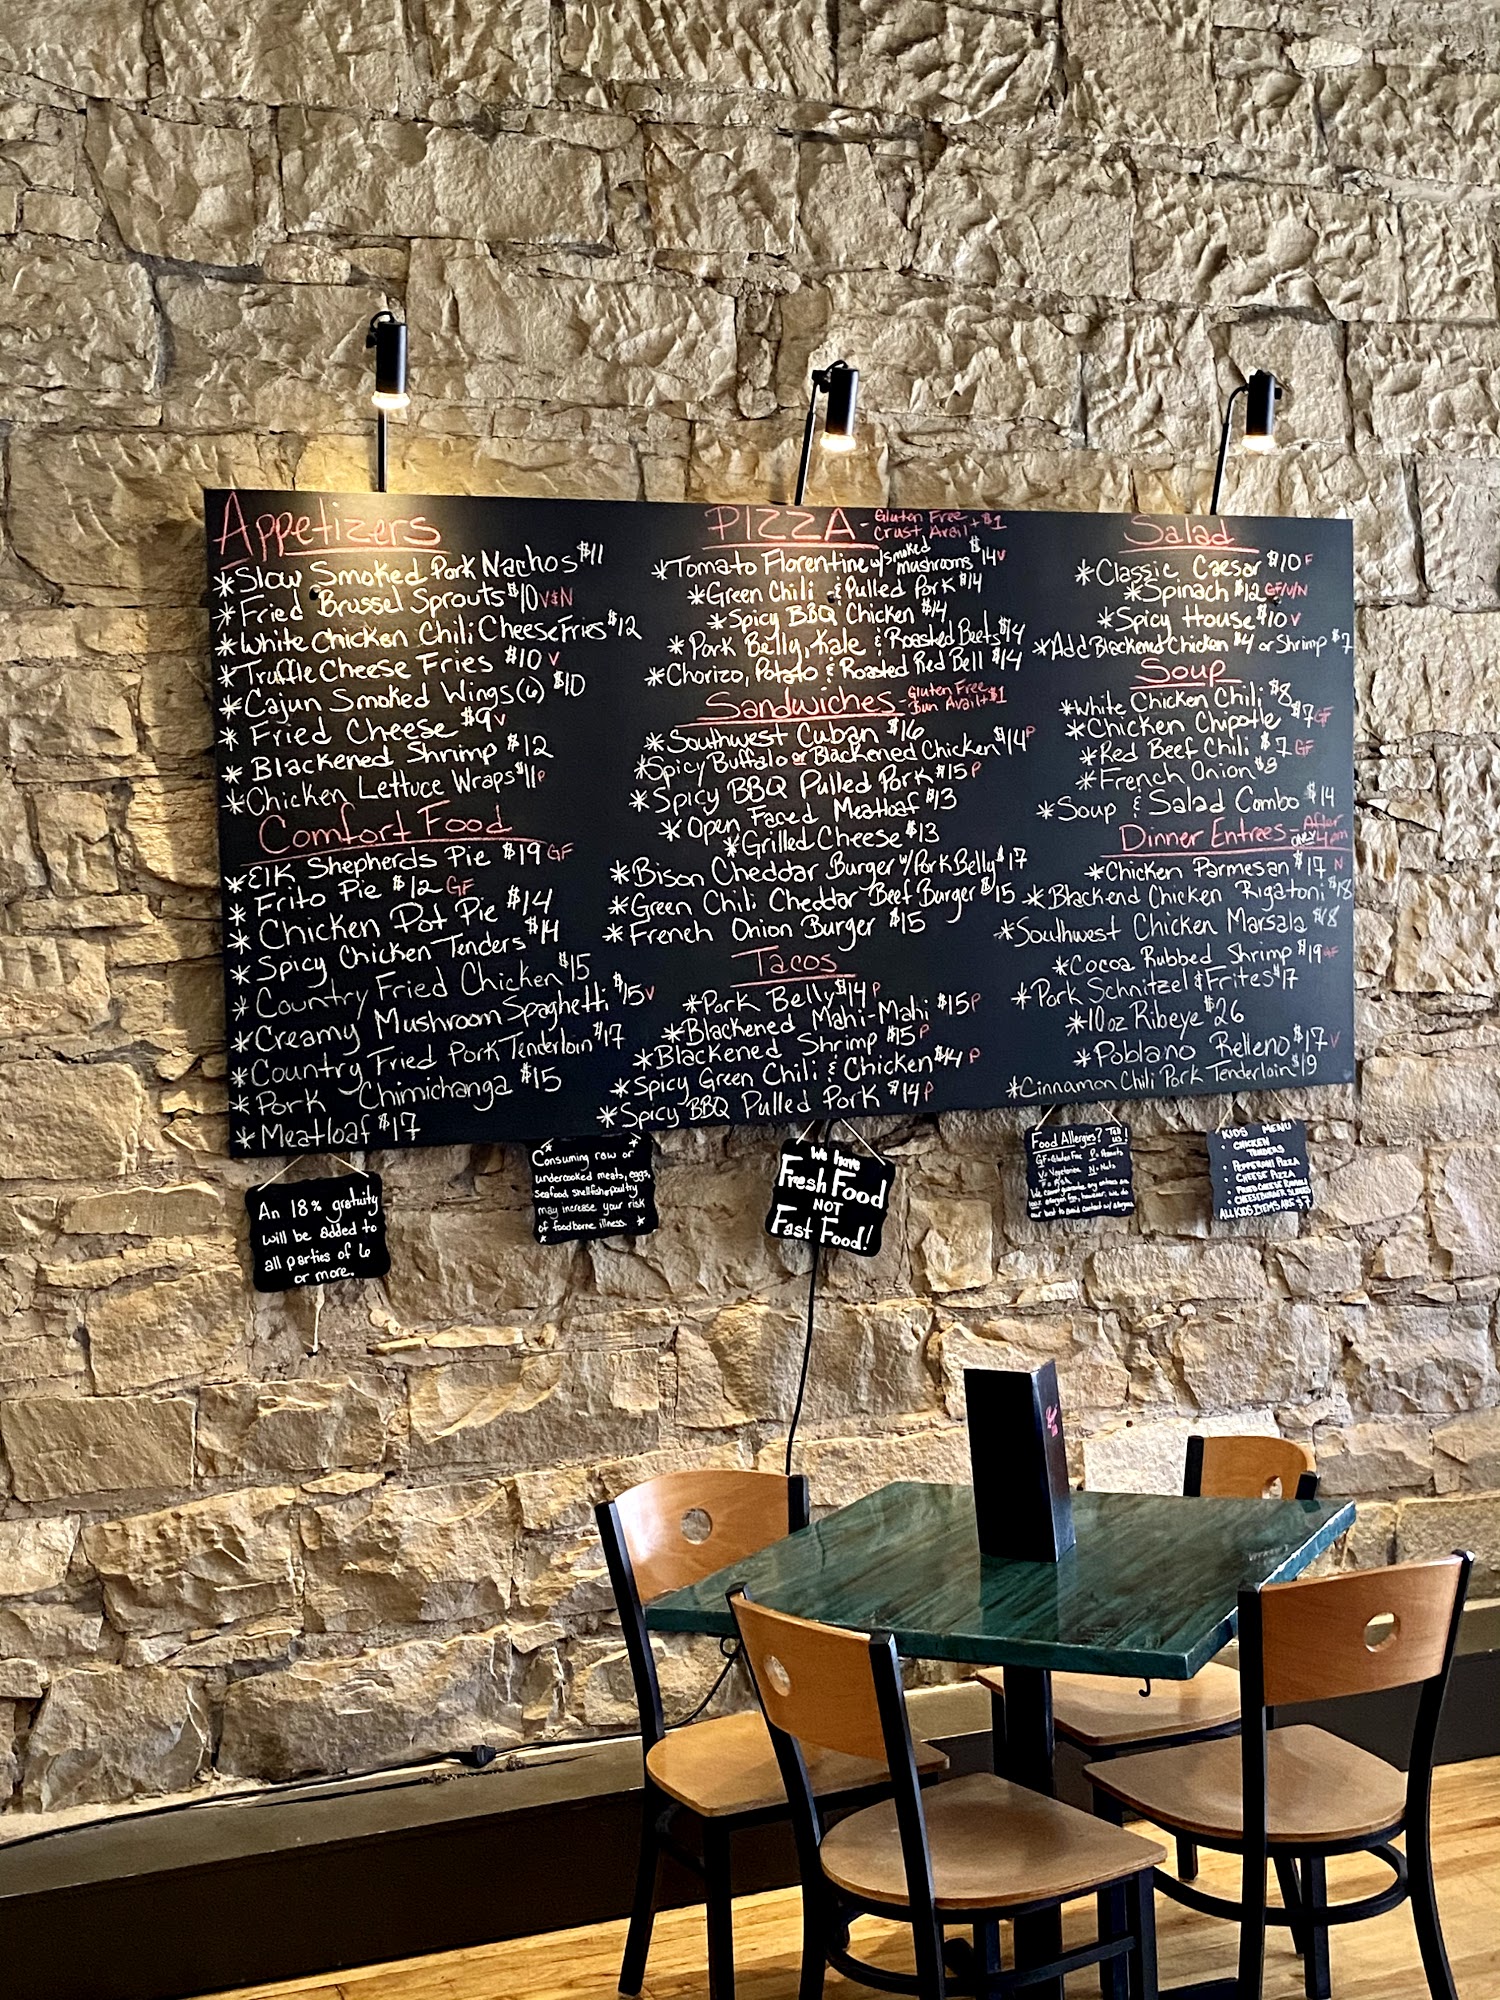 Appetizers
*Slow Smoked Pork Nachos $11
*Fried Brussel Sprouts $10 V&N
*White Chicken Chili Cheese Fries $12
*Truffle Cheese Fries $10 V
*Cajun Smoked Wings (6) $10
* Fried Cheese $9 V
*Blackened Shrimp $12
*Chicken Lettuce Wraps $11 P
Comfort Food
*Elk Shepherds Pie $19 GF
* Frito Pie $12 GF
* Chicken Pot Pie $14
* Spicy Chicken Tenders $14
* Country Fried Chicken $15
*Creamy Mushroom Spaghetti $15 V
*Country Fried Pork Tenderloin $17
*Pork Chimichanga $15
*Meatloaf $17
PIZZA - Gluten Free
Crust Avail + $1
*Tomato Florentine w/ smoked mushrooms $14 V
*Green Chili & Pulled Pork $14
*Spicy BBQ Chicken $14
* Pork Belly, Kale & Roasted Beets $14
*Chorizo, Potato & Roasted Red Bell $14
Sandwiches - Gluten Free
Bun Avail + $1
*Southwest Cuban $16
*Spicy Buffalo or Blackened Chicken $14 P
*Spicy BBQ Pulled Pork $15 P
* Open Faced Meatloaf $13
*Grilled Cheese $13
*Bison Cheddar Burger w/ Pork Belly $17
*Green Chili Cheddar Beef Burger $15
* French Onion Burger $15
Tacos
*Pork Belly $14 P
*Blackened Mahi-Mahi $15 P
*Blackened Shrimp $15 P
*Spicy Green Chili & Chicken $14 P
*Spicy BBQ Pulled Pork $14 P
Salad
*Classic Caesar $10 F
*Spinach $12 GF/V/N
*Spicy House $10 V
*Add Blackened Chicken $4 or Shrimp $7
Soup
*White Chicken Chili $8
*Chicken Chipotle $7 GF
*Red Beef Chili $7 GF
*French Onion $8
*Soup & Salad Combo $14
Dinner Entrees - After
ONLY 4pm
*Chicken Parmesan $17 N
*Blackend Chicken Rigatoni $18
*Southwest Chicken Marsala $18
*Cocoa Rubbed Shrimp $19 GF
*Pork Schnitzel & Frites $17
*10oz Ribeye $26
*Poblano Relleno $17 V
*Cinnamon Chili Pork Tenderloin $19
An 18% gratuity
will be added to
all parties of 6
or more.
* *
Consuming raw or
undercooked meats, eggs,
seafood, shellfish or poultry
may increase your risk
of foodborne illness. *
*
We have
Fresh Food
NOT
Fast Food!
Food Allergies? Tell us!
GF=Gluten Free P=Peanuts
V=Vegetarian N=Nuts
F=Fish
We cannot guarantee any entrees are
however, we do
our best to avoid contact w/
KIDS MENU
• CHICKEN
TENDERS
• PEPPERONI PIZZA
• CHEESE PIZZA
• FRIED CHEESE RAVIOLI
• CHEESEBURGER SLIDERS
ALL KIDS ITEMS ARE $7